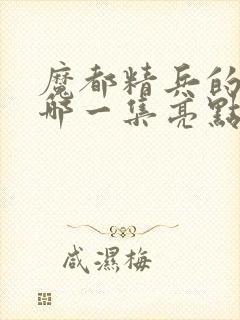 魔都精兵的
哪一集亮點
咸濕梅